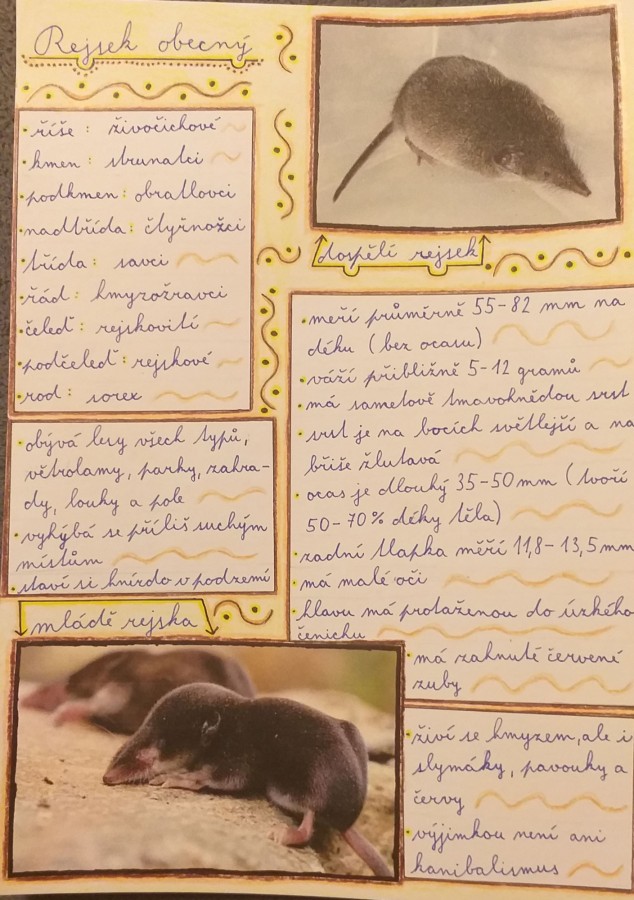 Rejsek obecný
• říše: živočichové
• kmen: strunatci
• podkmen: obratlovci
• nadtřída: čtyřnožci
• třída: savci
• řád: hmyzožravci
• čeleď: rejskovití
• podčeleď: rejskové
• rod: sorex
• obývá lesy všech typů,
větrolamy, parky, zahra-
dy, louky a pole
• vyhýbá se příliš suchým
místům
• staví si hnízdo v podzemí
dospělí rejsek
• měří průměrně 55-82 mm na
déku (bez ocasu)
• váží přibližně 5-12 gramů
• má sametově tmavohnědou srst
• srst je na bocích světlejší a na
břiše žlutavá
• ocas je dlouhý 35-50 mm (tvoří
50-70% déky těla)
• zadní tlapka měří 11,8-13,5 mm
• má malé oči
• hlavu má protaženou do úzkého
čenichu
• má zahnuté červené
zuby
mládě rejska
• živí se hmyzem, ale i
slymáky, pavouky a
červy
• výjimkou není ani
kanibalismus